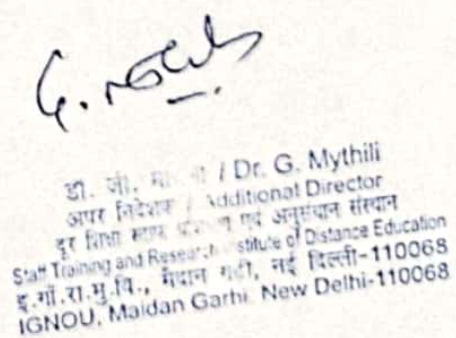 डा. जी. / Dr. G. Mythili
अपर निदेशक / Additional Director
दूर शिक्षा स्टाफ एवं अनुसंधान संस्थान
Staff Training and Research Institute of Distance Education
इ.गाँ.रा.मु.वि., मैदान गढ़ी, नई दिल्ली-110068
IGNOU, Maidan Garhi, New Delhi-110068